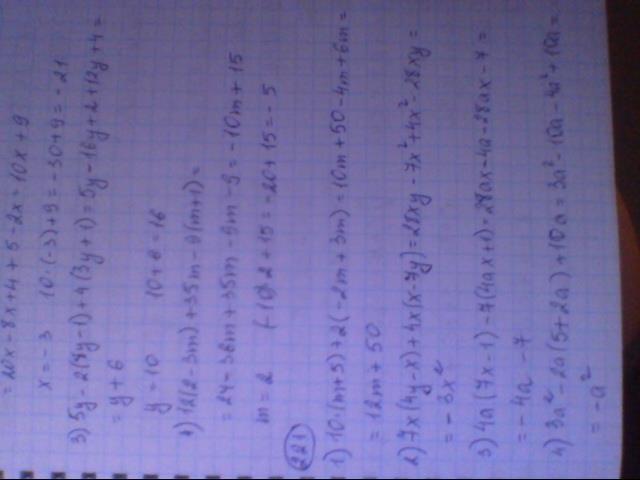 = 20x - 8x + 4 + 5 - 2x = 10x + 9
x = -3 10·(-3) + 9 = -30 + 9 = -21
3) 5y - 2(8y - 1) + 4(3y + 1) = 5y - 16y + 2 + 12y + 4 =
= y + 6
y = 10 10 + 6 = 16
4) 12(2 - 3m) + 35m - 9(m + 1) =
= 24 - 36m + 35m - 9m - 9 = -10m + 15
m = 2 (-10)·2 + 15 = -20 + 15 = -5
221
1) 10·(m + 5) + 2(-2m + 3m) = 10m + 50 - 4m + 6m =
= 12m + 50
2) 7x(4y - x) + 4x(x - 7y) = 28xy - 7x² + 4x² - 28xy =
= -3x²
3) 4a(7x - 1) - 7(4ax + 1) = 28ax - 4a - 28ax - 7 =
= -4a - 7
4) 3a² - 2a(5 + 2a) + 10a = 3a² - 10a - 4a² + 10a =
= -a²